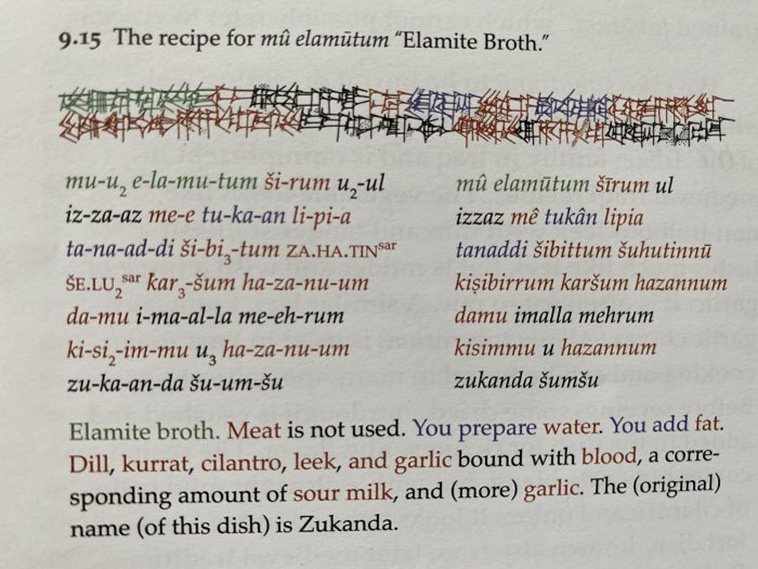 9.15 The recipe for mû elamūtum “Elamite Broth.”
mu-u₂ e-la-mu-tum ši-rum u₂-ul
iz-za-az me-e tu-ka-an li-pi-a
ta-na-ad-di ši-bi₃-tum ZA.HA.TINˢᵃʳ
ŠE.LU₂ˢᵃʳ kar₃-šum ha-za-nu-um
da-mu i-ma-al-la me-eh-rum
ki-si₂-im-mu u₃ ha-za-nu-um
zu-ka-an-da šu-um-šu
mû elamūtum šīrum ul
izzaz mê tukân lipia
tanaddi šibittum šuhutinnū
kiṣibirrum karšum hazannum
damu imalla mehrum
kisimmu u hazannum
zukanda šumšu
Elamite broth. Meat is not used. You prepare water. You add fat.
Dill, kurrat, cilantro, leek, and garlic bound with blood, a corre-
sponding amount of sour milk, and (more) garlic. The (original)
name (of this dish) is Zukanda.